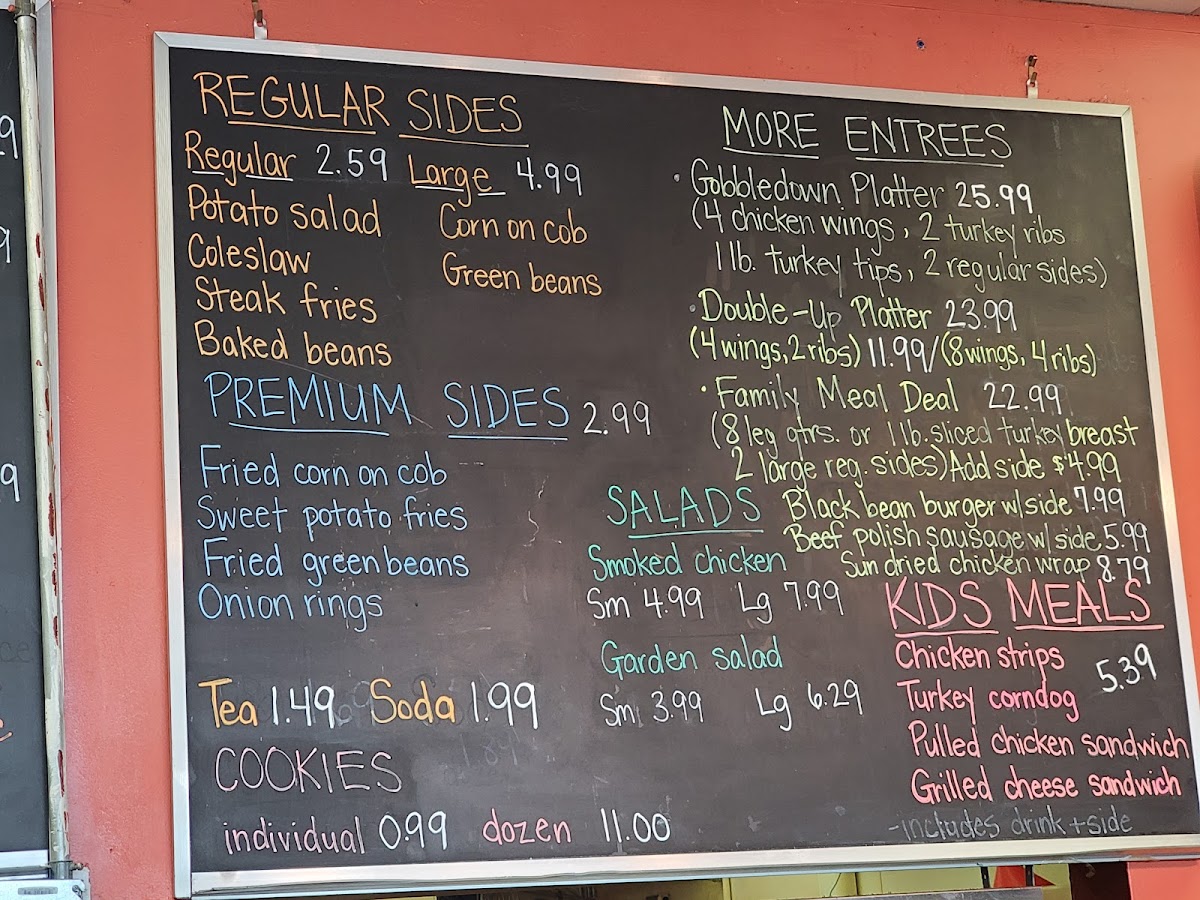 REGULAR SIDES
Regular 2.59 Large 4.99
Potato salad
Corn on cob
Coleslaw
Green beans
Steak fries
Baked beans
PREMIUM SIDES 2.99
Fried corn on cob
Sweet potato fries
Fried green beans
Onion rings
Tea 1.49 Soda 1.99
COOKIES
individual 0.99 dozen 11.00
MORE ENTREES
• Gobbledown Platter 25.99
(4 chicken wings, 2 turkey ribs
1 lb. turkey tips, 2 regular sides)
• Double-Up Platter 23.99
(4 wings, 2 ribs) 11.99/(8 wings, 4 ribs)
• Family Meal Deal 22.99
(8 leg qtrs. or 1 lb. sliced turkey breast
2 large reg. sides) Add side $4.99
Black bean burger w/ side 7.99
Beef polish sausage w/ side 5.99
Sun dried chicken wrap 8.79
SALADS
Smoked chicken
Sm 4.99 Lg 7.99
Garden salad
Sm 3.99 Lg 6.29
KIDS MEALS
Chicken strips
5.39
Turkey corndog
Pulled chicken sandwich
Grilled cheese sandwich
-includes drink + side